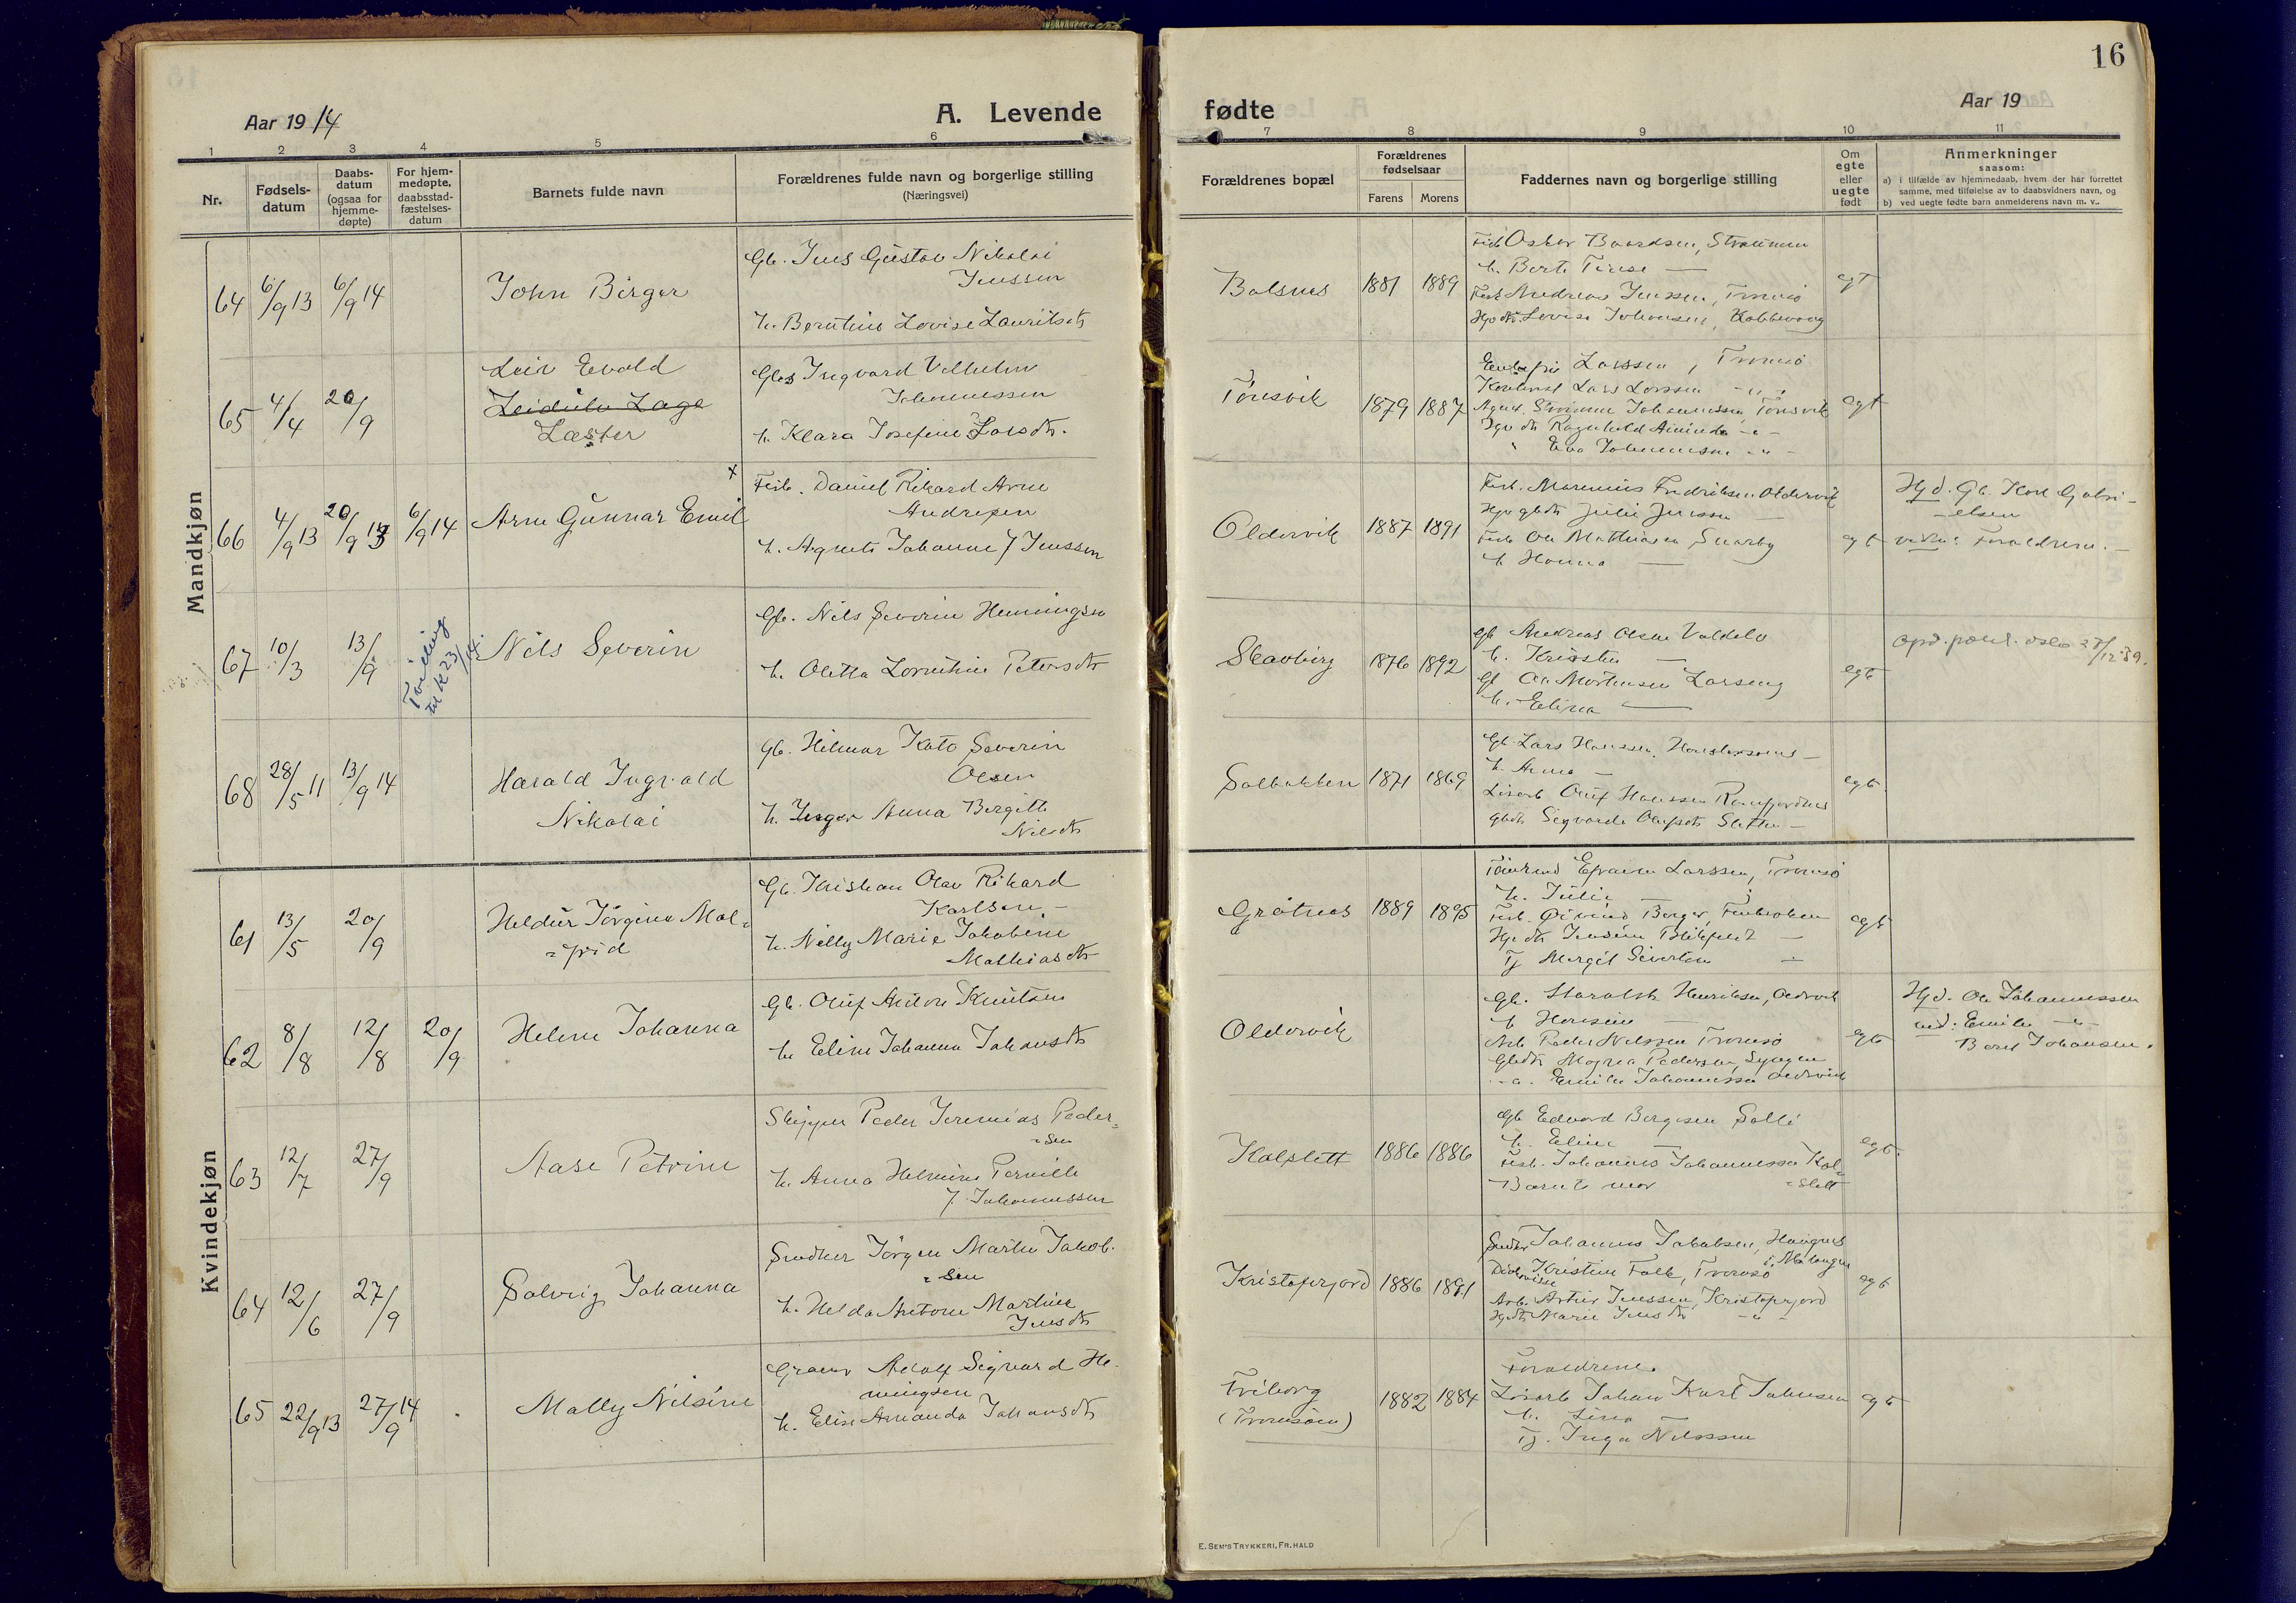 16
Aar 1914
A. Levende
fødte
Aar 19
1 2 3 4 5 6 7 8 9 10 11
Nr.
Fødsels-
datum
Daabs-
datum
(ogsaa for
hjemme-
døpte)
For hjem-
medøpte,
daabsstad-
fæstelses-
datum
Barnets fulde navn
Forældrenes fulde navn og borgerlige stilling
(Næringsvei)
Forældrenes bopæl
Forældrenes
fødselsaar
Farens Morens
Faddernes navn og borgerlige stilling
Om
egte
eller
uegte
født
Anmerkninger
saasom:
a) i tilfælde av hjemmedaab, hvem der har forrettet
samme, med tilføielse av to daabsvidners navn, og
b) ved uegte fødte barn anmelderens navn m. v..
Mandkjøn
64 6/9 13 6/9 14
John Birger
Gb. Jens Gustav Nikolai
Jenssen
h. Berntine Lovise Lauritsdtr
Balsnes 1881 1889
Fisk Oskar Baardsen, Straumen
h. Berte Terese —
Fisk Andreas Jenssen, Tromsö
Hp dtr. Lovise Johansen, Kobbevaag
egt
65 4/4 20/9
Leiv Evald
Leidulv Lage
Læster
Ingvard Vilhelm
Johannessen
h. Klara Josefine Larsdtr.
Tönsvik 1879 1887
Larssen, Tromsö
Lars Larssen
Johannessen, Tönsvik
Ragnhild Aminda
Johannessen
egt
66 4/9 13 20/9 13 6/9 14
Arne Gunnar Emil x
Fisk. Daniel Rikard Arne
Andresen
h. Agnete Johanne f Jenssen
Oldervik 1887 1891
Fisk. Marenius Fredriksen Oldervik
Julie Jenssen —
Fisk Ole Mathiasen, Snarby
h Hanna —
egt
Hjd. Gb. Karl Gabri-
-elsen
vidn: Forældrene.
67 10/3 13/9
Tvilling
til K 23/14.
Nils Severin
Gb. Nils Severin Henningsen
h. Oletta Lorentine Petersdtr
Skavberg 1876 1892
Gb Andreas Olsen
h. Kristen —
Gb Ole Mortensen Larseng
h. Elina —
egt
Opd. Oslo 27/12 39.
68 28/5 11 13/9 14
Harald Ingvald
Nikolai
Gb. Hilmar Kato Severin
Olsen
h. Inger Anna Bergitte
Nilsdtr
Solbakken 1871 1869
Gb. Lars Hanssen,
h. Anna —
Oluf Hanssen Ramfjordnes
Gbdtr Sigvarda Olufsdtr
egt
Kvindekjøn
61 13/5 20/9
Heldur Jörgine Mal=
=frid
Gb. Kristian Olav Rikard
Karlsen —
h. Nelly Marie Jakobine
Mathiasdtr
Gråtnes 1889 1895
Efraim Larssen, Tromsö
h. Julie —
Fisk. Öivind Berger, Finkroken
Hp dtr Jensine —
Tj Margit Sivertsen —
egt
62 8/8 12/8 20/9
Helene Johanna
Gb. Oluf Anton Knutsen
h. Eline Johanna Johansdtr
Oldervik
Gb. Harald Henriksen, Oldervik
h Hansine —
Arb Peder Nilssen Tromsö
Gbdtr Magna Pedersen, Lyngen
Emilie Johannessen Oldervik
egt
Hjd. Ole Johannessen
vid: Emilie
Johansen.
63 12/7 27/9
Aase Petrine
Skipper Peder Jeremias Peder=
=sen
h. Anna Helmine Pernille
f. Johannessen
Kalslett 1886 1886
Gb Edvard Bergesen
h. Eline —
Fisk. Johannes Johannessen Kal=
=slett
Barnets mor
egt.
64 12/6 27/9
Solveig Johanna
Snedker Jörgen Martin Jakob=
=sen
h. Helda Antone Martine
Jensdtr
Kristoferjord 1886 1891
Snedker Johannes Jakobsen,
i Malangen
Diakonisse Kristine Falk, Tromsö
Arb. Artur Jenssen, Kristoferjord
Marie Jensdtr
egt
65 22/9 13 27/9 14
Mally Nilsine
Adolf Sigvard He-
ningsen
h. Elise Amanda Johansdtr
Friborg
(Tromsöen) 1882 1884
Forældrene.
Johan Karl Johnsen
h. Lina —
Tj. Inga Nilssen
egt
E. SEM'S TRYKKERI, FR.HALD